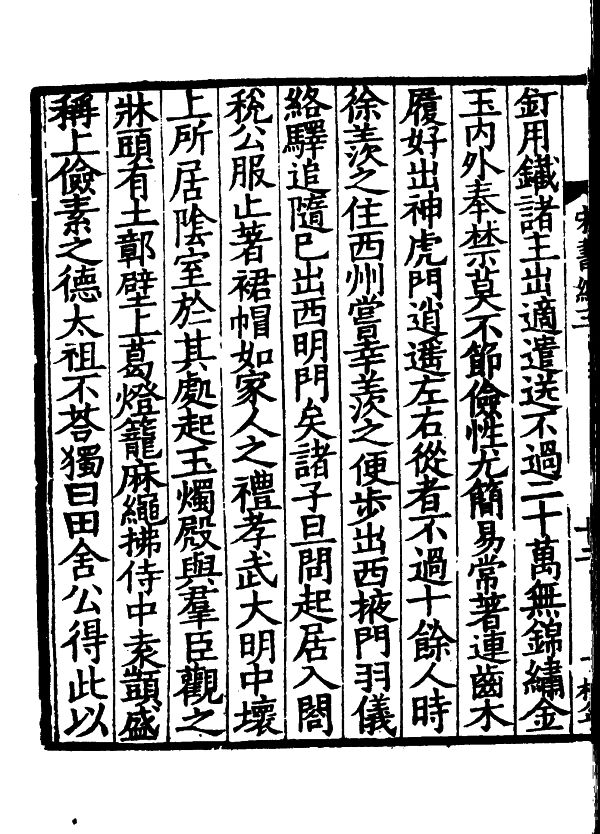 釘用鐵諸主出適遣送不過二十萬無錦繡金
玉内外奉禁莫不節儉性尤簡易常著連齒木
履好出神虎門逍遥左右從者不過十餘人時
徐羨之住西州嘗幸羨之便步出西掖門羽儀
絡驛追隨已出西明門矣諸子旦問起居入閤
稅公服止著裙帽如家人之禮孝武大明中壞
上所居隂室於其處起玉燭殿與羣臣觀之
牀頭有土鄣壁上葛燈籠麻繩拂侍中𡊮顗盛
稱上儉素之德太祖不荅獨曰田舍公得此以